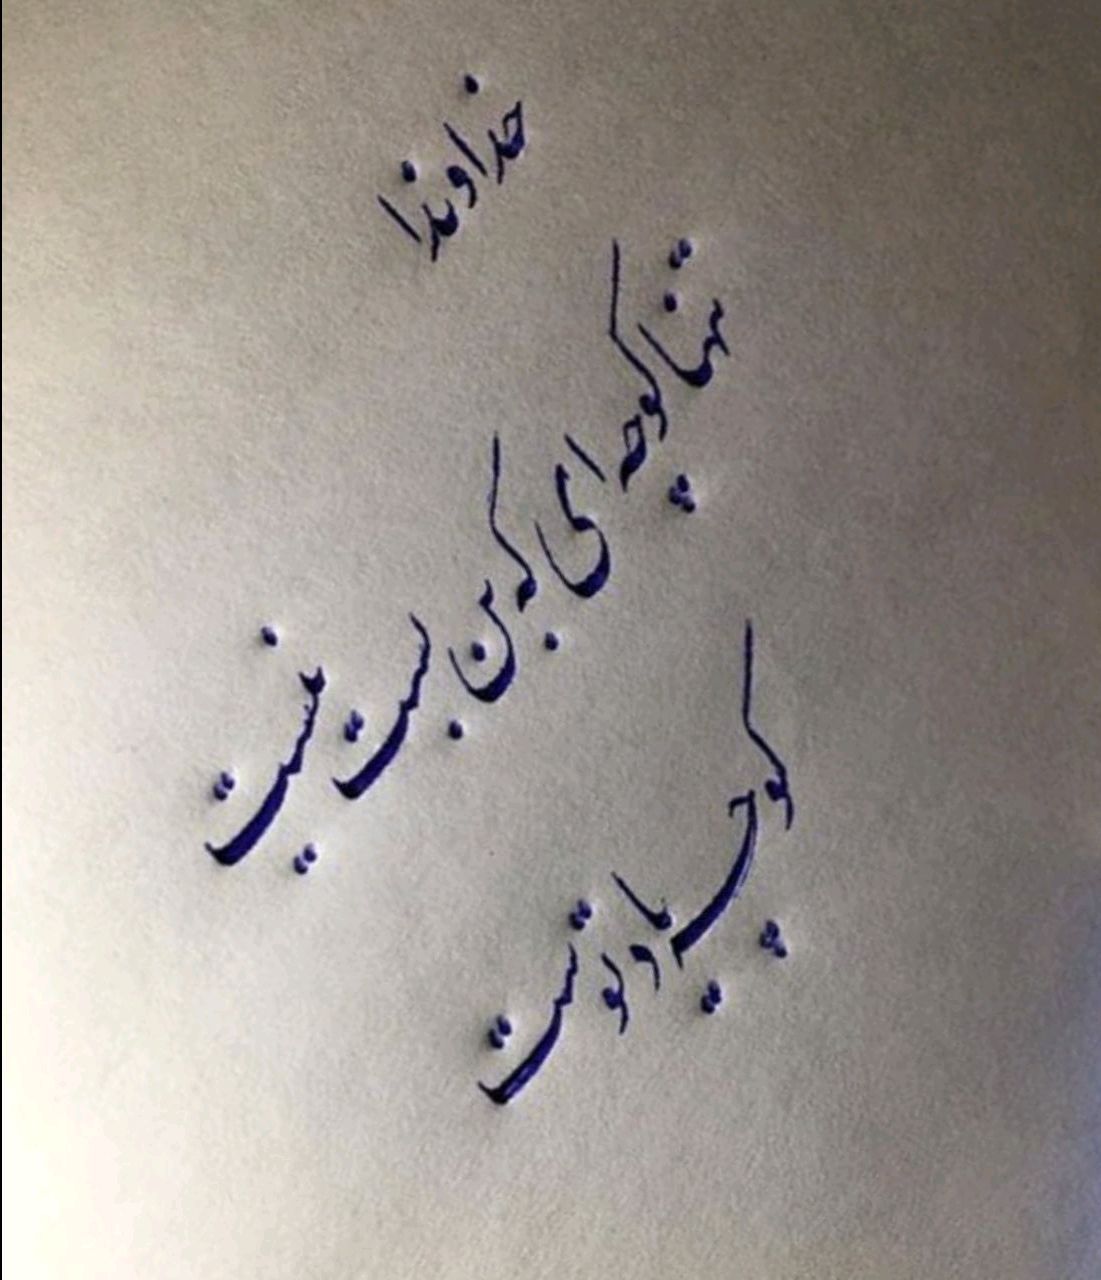 خداوندا
تنها کوچه ای که بن بست نیست
کوچه یاد توست